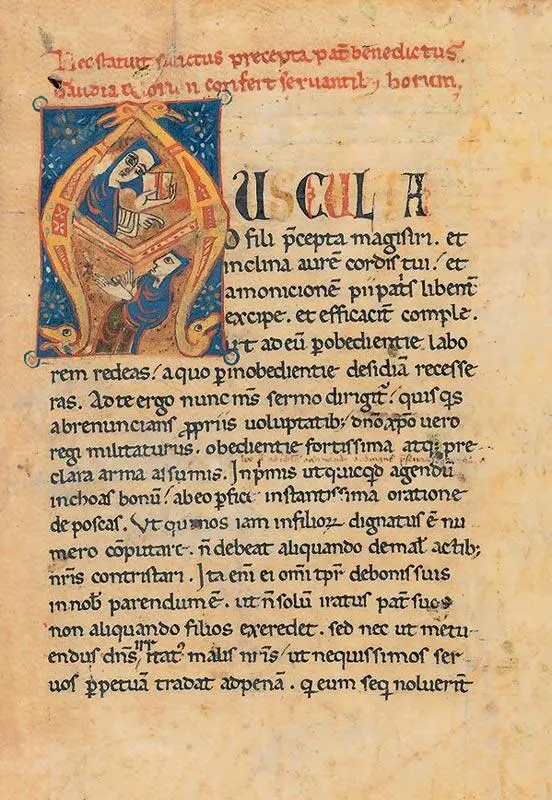 Hec statuit sanctus precepta pat̄ benedictus.
Gaudia confert servantib; horum,
AUSCULTA
O fili p̄cepta magistri. et
inclina aurē cordis tui. et
amonicionē pii pat̄s libent̄
excipe. et efficacit̄ comple.
ut ad eū p obedientie labo
rem redeas. a quo p inobedientie desidiā recesse
ras. Ad te ergo nunc m̄s sermo dirigit̄. quisq̄s
abrenuncians propriis voluptatib; dn̄o xp̄o vero
regi militaturus. obedientie fortissima atq; pre
clara arma assumis. In p̄mis ut quicq̄d agendū
inchoas bonū. ab eo p̄fici instantissima oratione
deposcas. Ut qui nos iam in filioꝝ dignatus ē nu
mero cōputare. n̄ debeat aliquando de malis actib;
nr̄is contristari. Ita enī ei om̄i tp̄r de bonis suis
in nob̄ parendum ē. ut n̄ solū iratus pat̄ suos
non aliquando filios exeredet. sed nec ut metu
endus dn̄s irritatꝰ malis nr̄is. ut nequissimos ser
vos p̄petuā tradat ad penā. q̄ eum seq̄ noluerint̄